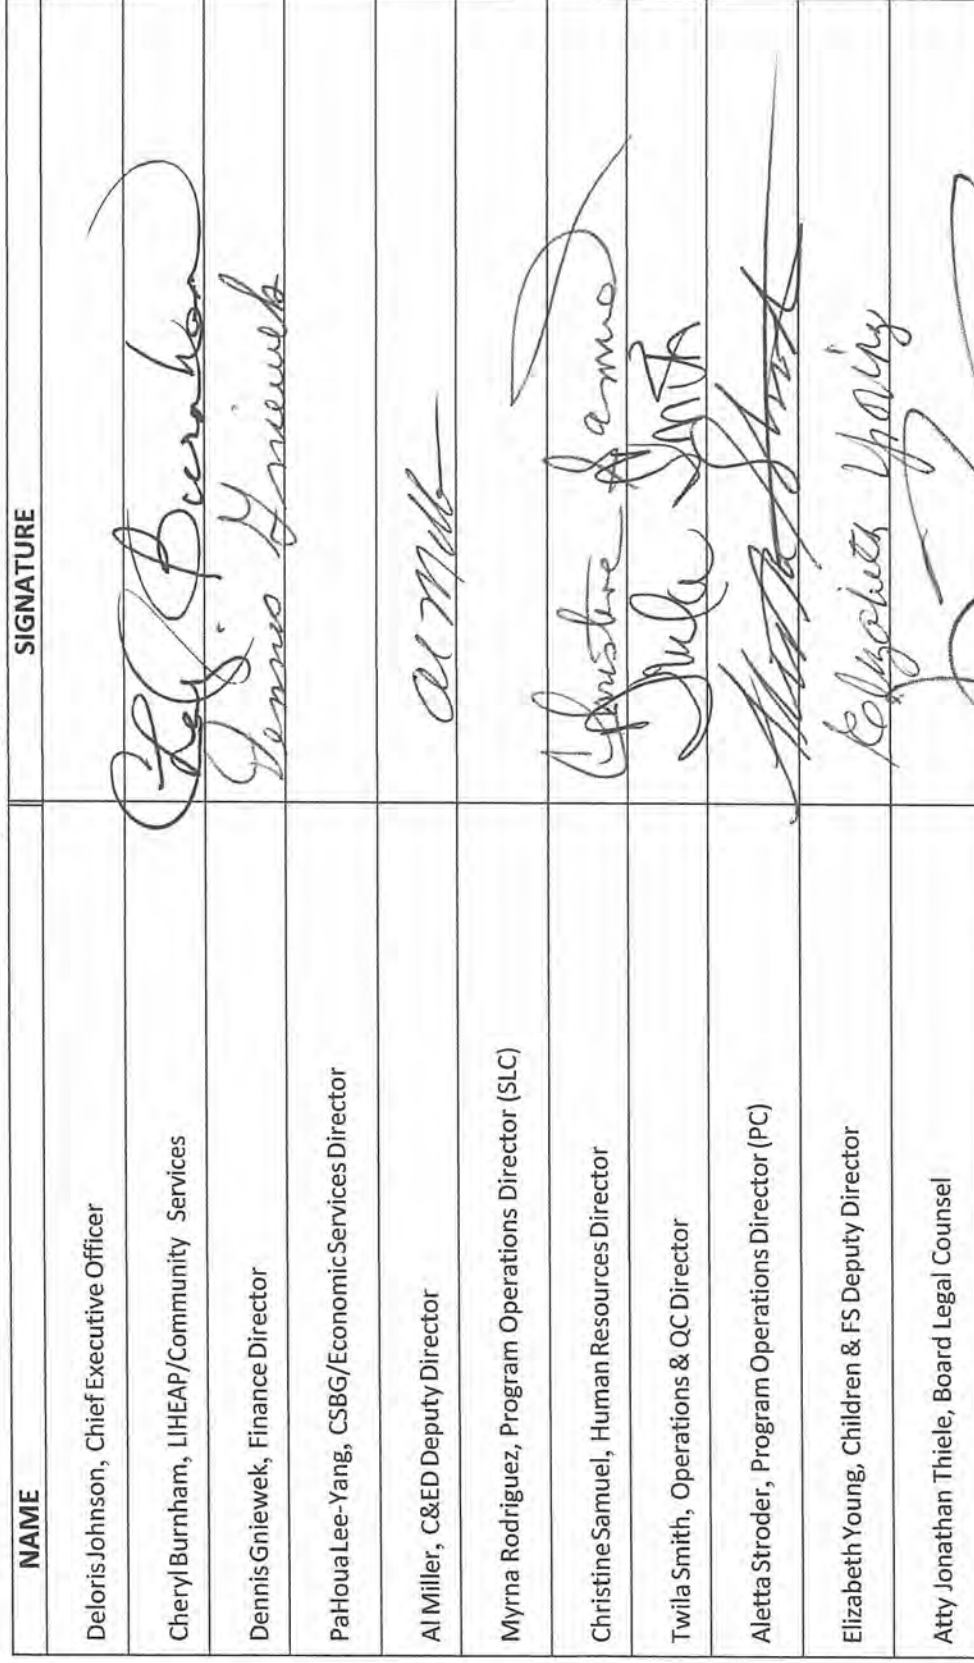 NAME SIGNATURE
Deloris Johnson, Chief Executive Officer
Cheryl Burnham, LIHEAP/Community Services Cheryl Burnham
Dennis Gniewek, Finance Director Dennis Gniewek
PaHoua Lee-Yang, CSBG/Economic Services Director
Al Miller, C&ED Deputy Director Al Mille
Myrna Rodriguez, Program Operations Director (SLC)
Christine Samuel, Human Resources Director Christine
Twila Smith, Operations & QC Director Twila Smith
Aletta Stroder, Program Operations Director (PC)
Elizabeth Young, Children & FS Deputy Director Elizabeth Young
Atty Jonathan Thiele, Board Legal Counsel